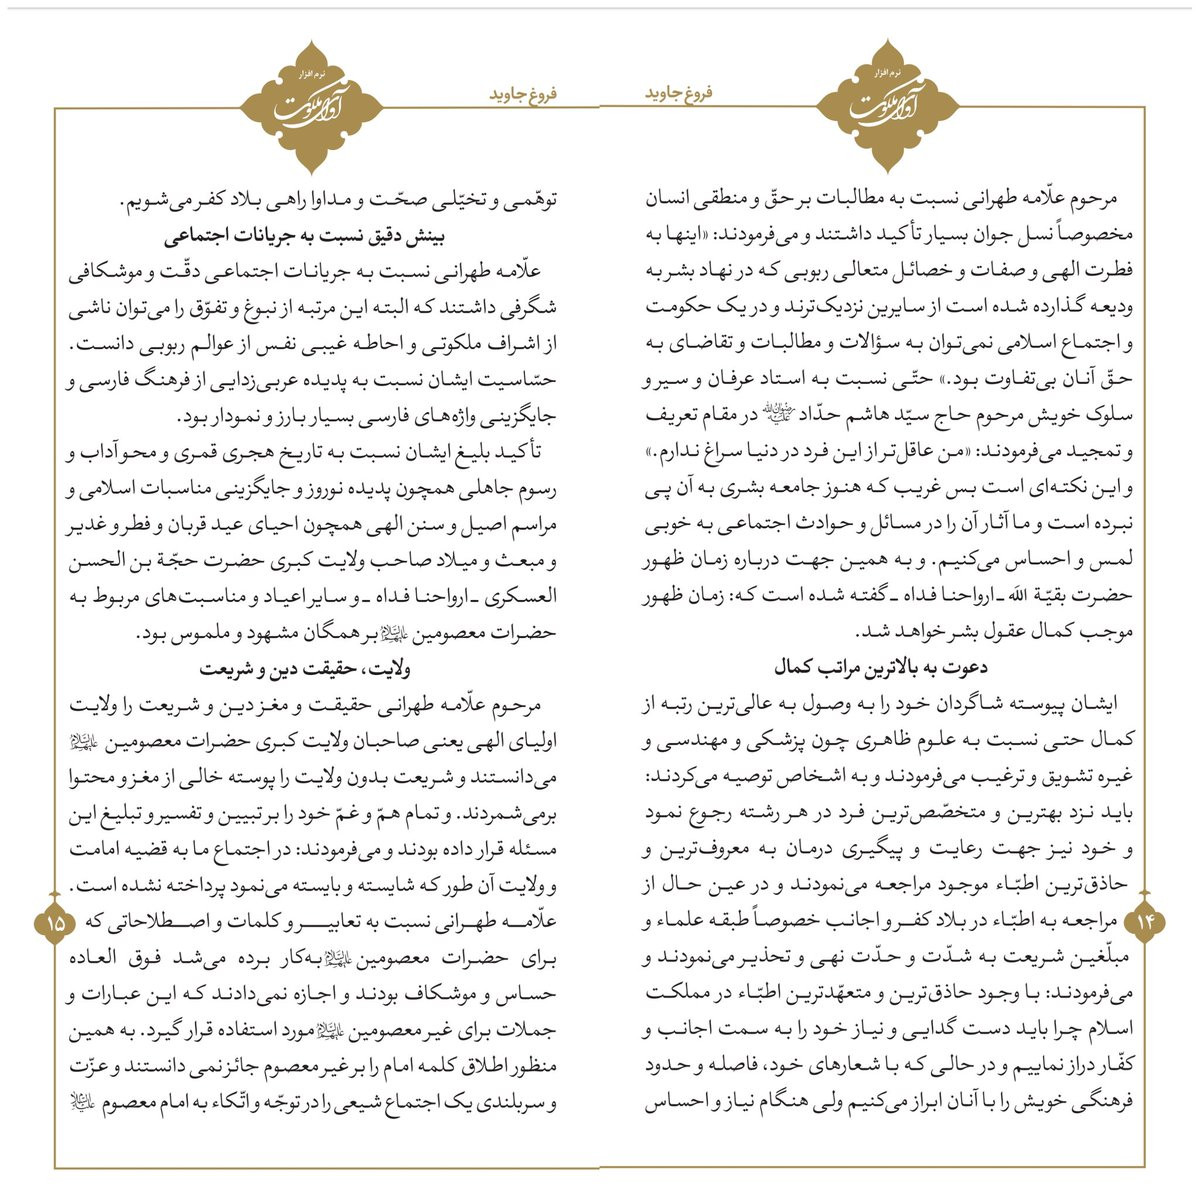 نرم افزار
آوای ملکوت
فروغ جاوید
مرحوم علّامه طهرانی نسبت به مطالبات بر حقّ و منطقی انسان
مخصوصاً نسل جوان بسیار تأکید داشتند و می‌فرمودند: «اینها به
فطرت الهی و صفات و خصائل متعالی ربوبی که در نهاد بشر به
ودیعه گذارده شده است از سایرین نزدیک‌ترند و در یک حکومت
و اجتماع اسلامی نمی‌توان به سؤالات و مطالبات و تقاضای به
حقّ آنان بی‌تفاوت بود.» حتّی نسبت به استاد عرفان و سیر و
سلوک خویش مرحوم حاج سیّد هاشم حدّاد رضوان الله علیه در مقام تعریف
و تمجید می‌فرمودند: «من عاقل‌تر از این فرد در دنیا سراغ ندارم.»
و این نکته‌ای است بس غریب که هنوز جامعه بشری به آن پی
نبرده است و ما آثار آن را در مسائل و حوادث اجتماعی به خوبی
لمس و احساس می‌کنیم. و به همین جهت درباره زمان ظهور
حضرت بقیّة الله ـ ارواحنا فداه ـ گفته شده است که: زمان ظهور
موجب کمال عقول بشر خواهد شد.
دعوت به بالاترین مراتب کمال
ایشان پیوسته شاگردان خود را به وصول به عالی‌ترین رتبه از
کمال حتی نسبت به علوم ظاهری چون پزشکی و مهندسی و
غیره تشویق و ترغیب می‌فرمودند و به اشخاص توصیه می‌کردند:
باید نزد بهترین و متخصّص‌ترین فرد در هر رشته رجوع نمود
و خود نیز جهت رعایت و پیگیری درمان به معروف‌ترین و
حاذق‌ترین اطبّاء موجود مراجعه می‌نمودند و در عین حال از
مراجعه به اطبّاء در بلاد کفر و اجانب خصوصاً طبقه علماء و
مبلّغین شریعت به شدّت و حدّت نهی و تحذیر می‌نمودند و
می‌فرمودند: با وجود حاذق‌ترین و متعهّدترین اطبّاء در مملکت
اسلام چرا باید دست گدایی و نیاز خود را به سمت اجانب و
کفّار دراز نماییم و در حالی که با شعارهای خود، فاصله و حدود
فرهنگی خویش را با آنان ابراز می‌کنیم ولی هنگام نیاز و احساس
۱۴
نرم افزار
آوای ملکوت
فروغ جاوید
توهّمی و تخیّلی صحّت و مداوا راهی بلاد کفر می‌شویم.
بینش دقیق نسبت به جریانات اجتماعی
علّامه طهرانی نسبت به جریانات اجتماعی دقّت و موشکافی
شگرفی داشتند که البته این مرتبه از نبوغ و تفوّق را می‌توان ناشی
از اشراف ملکوتی و احاطه غیبی نفس از عوالم ربوبی دانست.
حسّاسیت ایشان نسبت به پدیده عربی‌زدایی از فرهنگ فارسی و
جایگزینی واژه‌های فارسی بسیار بارز و نمودار بود.
تأکید بلیغ ایشان نسبت به تاریخ هجری قمری و محو آداب و
رسوم جاهلی همچون پدیده نوروز و جایگزینی مناسبات اسلامی و
مراسم اصیل و سنن الهی همچون احیای عید قربان و فطر و غدیر
و مبعث و میلاد صاحب ولایت کبری حضرت حجّة بن الحسن
العسکری ـ ارواحنا فداه ـ و سایر اعیاد و مناسبت‌های مربوط به
حضرات معصومین علیهم السلام بر همگان مشهود و ملموس بود.
ولایت، حقیقت دین و شریعت
مرحوم علّامه طهرانی حقیقت و مغز دین و شریعت را ولایت
اولیای الهی یعنی صاحبان ولایت کبری حضرات معصومین علیهم السلام
می‌دانستند و شریعت بدون ولایت را پوسته خالی از مغز و محتوا
برمی‌شمردند. و تمام همّ و غمّ خود را بر تبیین و تفسیر و تبلیغ این
مسئله قرار داده بودند و می‌فرمودند: در اجتماع ما به قضیه امامت
و ولایت آن طور که شایسته و بایسته می‌نمود پرداخته نشده است.
علّامه طهرانی نسبت به تعابیر و کلمات و اصطلاحاتی که
برای حضرات معصومین علیهم السلام به‌کار برده می‌شد فوق العاده
حساس و موشکاف بودند و اجازه نمی‌دادند که این عبارات و
جملات برای غیر معصومین علیهم السلام مورد استفاده قرار گیرد. به همین
منظور اطلاق کلمه امام را بر غیر معصوم جائز نمی دانستند و عزّت
و سربلندی یک اجتماع شیعی را در توجّه و اتّکاء به امام معصوم علیه السلام
۱۵